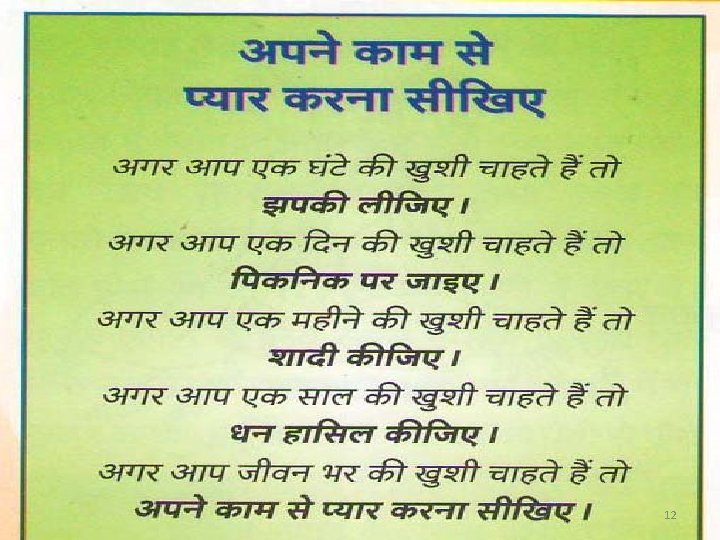 अपने काम से
प्यार करना सीखिए
अगर आप एक घंटे की खुशी चाहते हैं तो
झपकी लीजिए ।
अगर आप एक दिन की खुशी चाहते हैं तो
पिकनिक पर जाइए ।
अगर आप एक महीने की खुशी चाहते हैं तो
शादी कीजिए ।
अगर आप एक साल की खुशी चाहते हैं तो
धन हासिल कीजिए ।
अगर आप जीवन भर की खुशी चाहते हैं तो
अपने काम से प्यार करना सीखिए ।
12